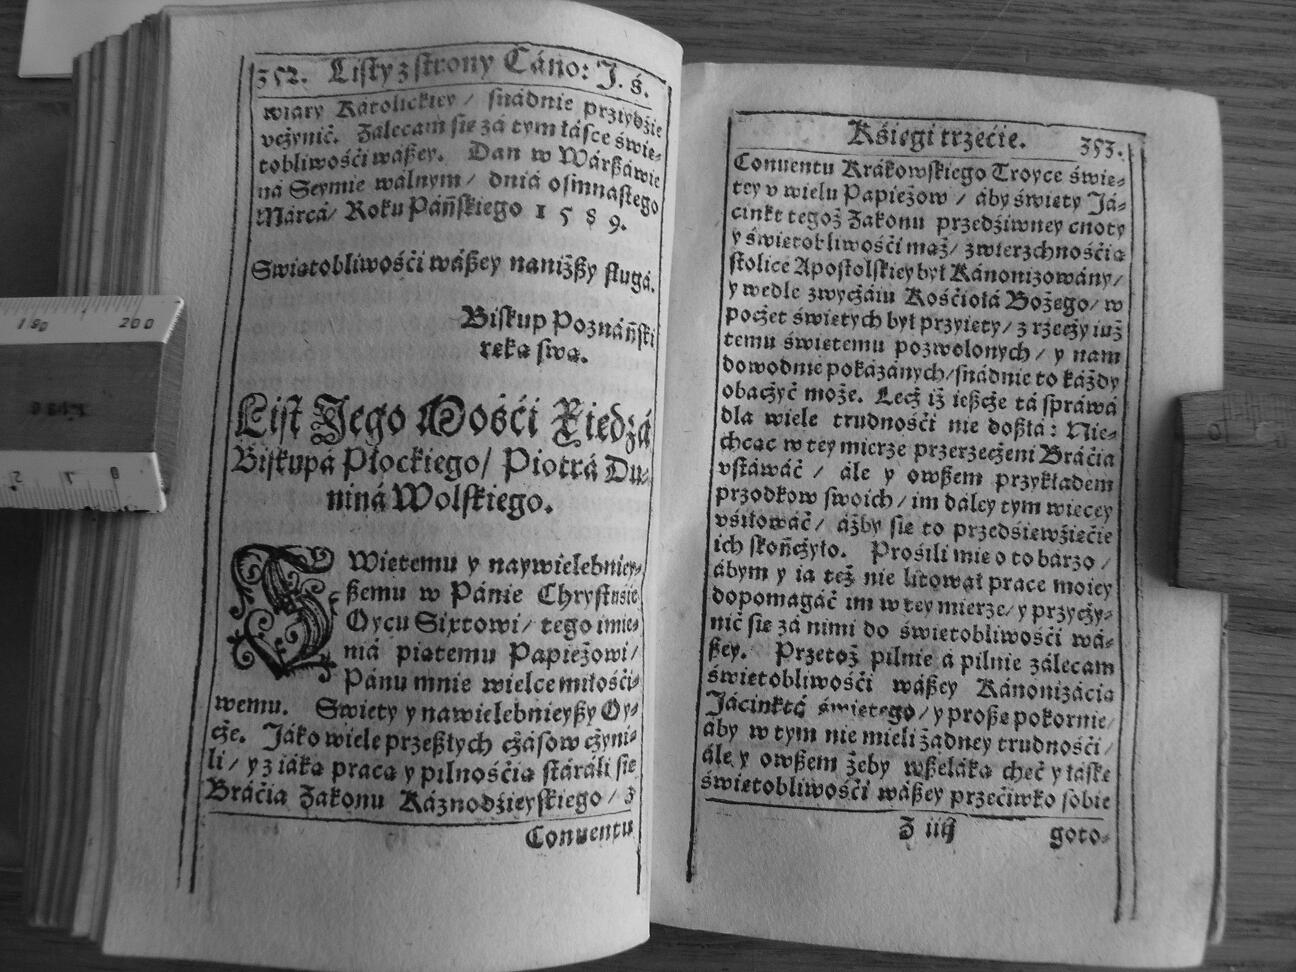 352. Listy z strony Cáno: J. ś.
wiary Kátolickiey / snádnie przyydzie
vcżynić. Zalecam się zá tym łásce świę-
tobliwośći wászey. Dan w Wárszáwie
ná Seymie walnym / dniá osimnastego
Márcá / Roku Páńskiego 1 5 8 9.
Swiątobliwośći wászey naniższy sługá.
Biskup Poznáński
ręką swą.
List Jego Mośći Xiędzá
Biskupá Płockiego / Piotrá Du-
niná Wolskiego.
SWiętemu y naywielebniey-
szemu w Pánie Chrystusie
Oycu Sixtowi / tego imie-
niá piątemu Papieżowi /
Pánu mnie wielce miłośći-
wemu. Swięty y nawielebnieyszy Oy-
cże. Jáko wiele przeszłych cżásow cżyni-
li / y z iáką pracą y pilnośćią stáráli się
Bráćia Zakonu Káznodźieyskiego / z
Conuentu
180
200
2
1
0
Kśięgi trzećie. 353.
Conuentu Krákowskiego Troyce świę-
tey v wielu Papieżow / áby święty Já-
cinkt tegoż Zakonu przedźiwney cnoty
y świętobliwośći mąż / zwierzchnośćią
stolice Apostolskiey był Kánonizowány /
y wedle zwycżáiu Kośćiołá Bożego / w
pocżet świętych był przyięty / z rzecży iuż
temu świętemu pozwolonych / y nam
dowodnie pokázánych / snádnie to káżdy
obacżyć może. Lecż iż iescże tá spráwá
dla wiele trudnośći nie doszłá: Nie-
chcąc w tey mierze przerzecżeni Bráćia
vstáwáć / ále y owszem przykłádem
przodkow swoich / im dáley tym więcey
vśiłowáć / áżby się to przedśięwźięćie
ich skońcżyło. Prośili mię o to bárzo /
ábym y ia też nie litował prace moiey
dopomagáć im w tey mierze / y przycży-
nić się zá nimi do świętobliwośći wá-
szey. Przetoż pilnie á pilnie zálecam
świętobliwośći wászey Kánonizácią
Jácinktá świętego / y proszę pokornie /
aby w tym nie mieli żadney trudnośći /
ále y owszem żeby wszeláką chęć y łáskę
świętobliwośći wászey przećiwko sobie
Z iiij
goto-